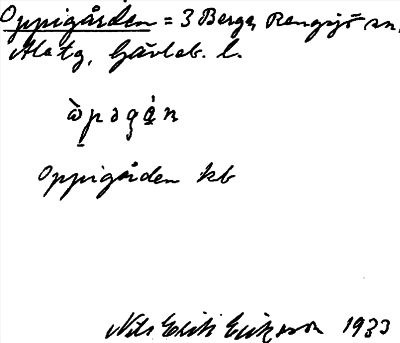 Oppigården = 3 Berge, Rengsjö sn,
Ala tg, Gävleb. l.
ὼp̱ǝgá̱n
Oppigården kb
Nils Erik Eriksson 1933